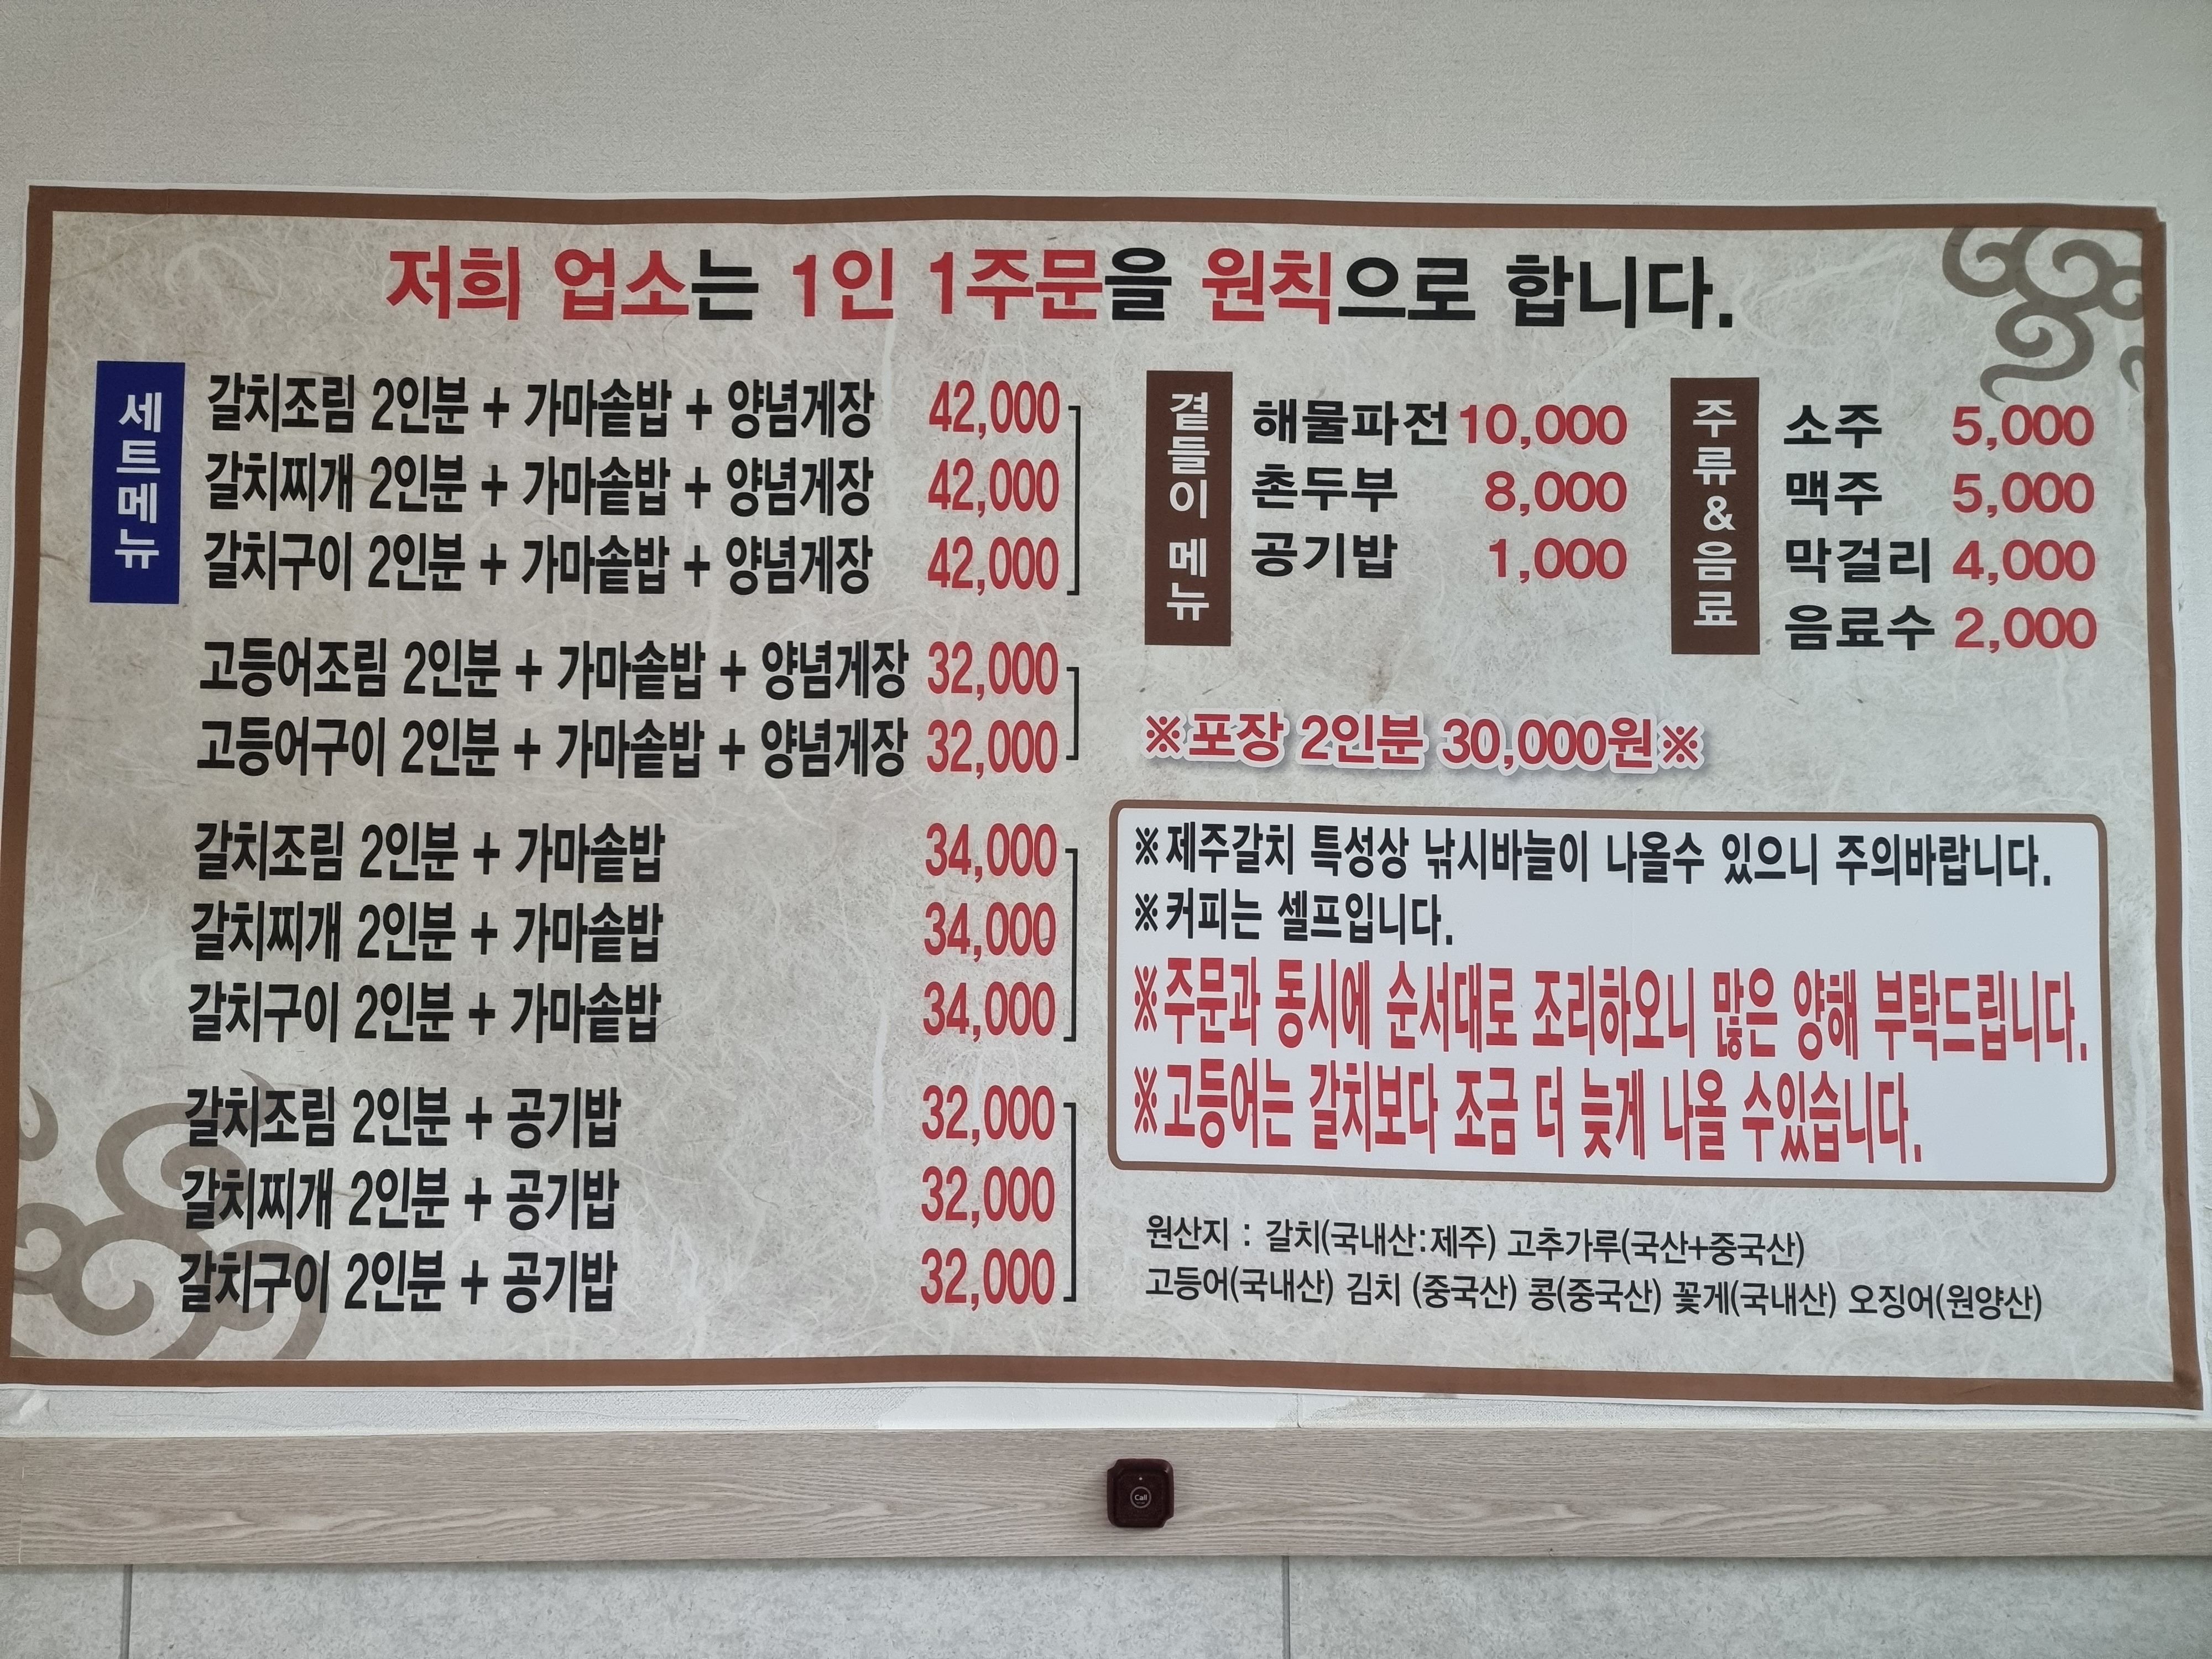 저희 업소는 1인 1주문을 원칙으로 합니다.
세트메뉴
갈치조림 2인분 + 가마솥밥 + 양념게장 42,000
갈치찌개 2인분 + 가마솥밥 + 양념게장 42,000
갈치구이 2인분 + 가마솥밥 + 양념게장 42,000
고등어조림 2인분 + 가마솥밥 + 양념게장 32,000
고등어구이 2인분 + 가마솥밥 + 양념게장 32,000
갈치조림 2인분 + 가마솥밥 34,000
갈치찌개 2인분 + 가마솥밥 34,000
갈치구이 2인분 + 가마솥밥 34,000
갈치조림 2인분 + 공기밥 32,000
갈치찌개 2인분 + 공기밥 32,000
갈치구이 2인분 + 공기밥 32,000
곁들이 메뉴
해물파전 10,000
촌두부 8,000
공기밥 1,000
주류&음료
소주 5,000
맥주 5,000
막걸리 4,000
음료수 2,000
※포장 2인분 30,000원※
※제주갈치 특성상 낚시바늘이 나올수 있으니 주의바랍니다.
※커피는 셀프입니다.
※주문과 동시에 순서대로 조리하오니 많은 양해 부탁드립니다.
※고등어는 갈치보다 조금 더 늦게 나올 수있습니다.
원산지 : 갈치(국내산:제주) 고추가루(국산+중국산)
고등어(국내산) 김치 (중국산) 콩(중국산) 꽃게(국내산) 오징어(원양산)
Call